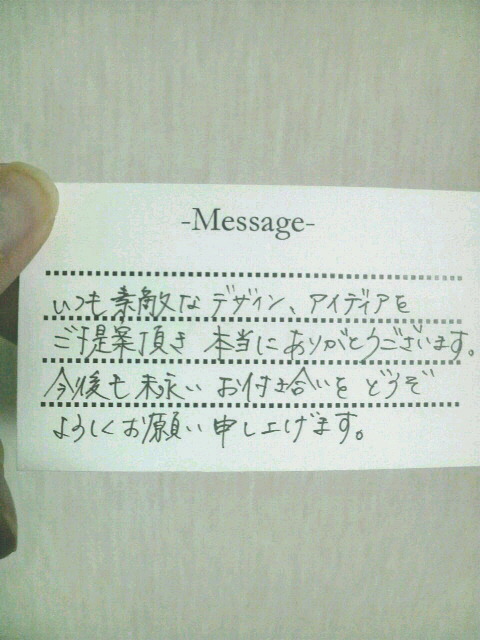 -Message-
いつも素敵なデザイン、アイディアを
ご提案頂き 本当にありがとうございます。
今後も末永い お付き合いを どうぞ
よろしくお願い申し上げます。